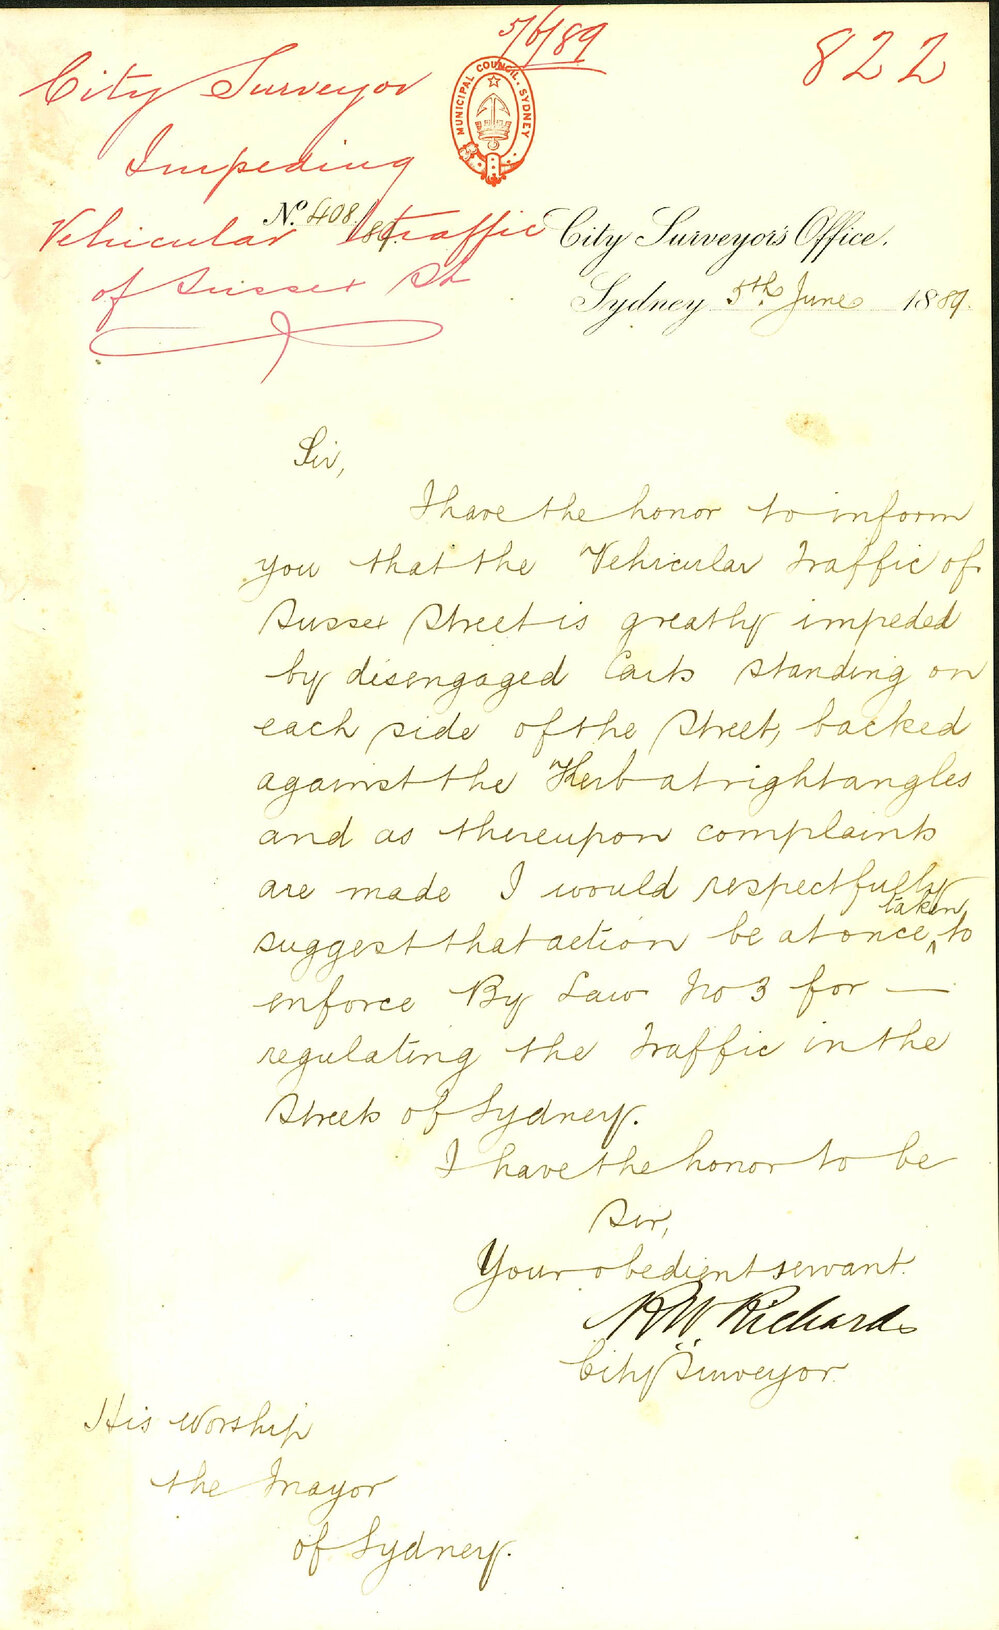 5/6/89
822
City Surveyor
Impeding
Vehicular traffic
of Sussex St
MUNICIPAL COUNCIL. SYDNEY
No. 408/89.
City Surveyor's Office.
Sydney 5th June 1889.
Sir,
I have the honor to inform
you that the Vehicular Traffic of
Sussex Street is greatly impeded
by disengaged Carts standing on
each side of the Street, backed
against the Kerb at right angles
and as thereupon complaints
are made I would respectfully
suggest that action be at once taken to
enforce By Law No 3 for —
regulating the Traffic in the
Streets of Sydney.
I have the honor to be
Sir,
Your obedient servant.
R W. Richards
City Surveyor.
His Worship
the Mayor
of Sydney.